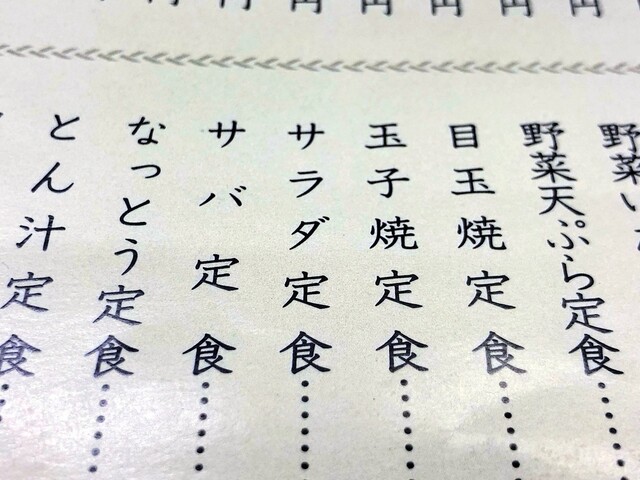 円円円円円円
野菜天ぷら定食
目玉焼定食
玉子焼定食
サラダ定食
サバ定食
なっとう定食
とん汁定食